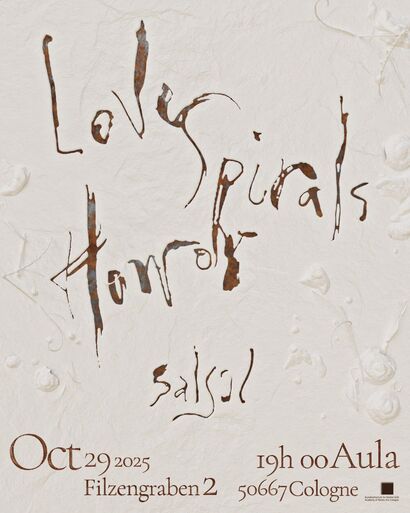 Love
Spirals
Honor
salgul
Oct 29 2025
19h 00 Aula
Filzengraben 2
50667 Cologne